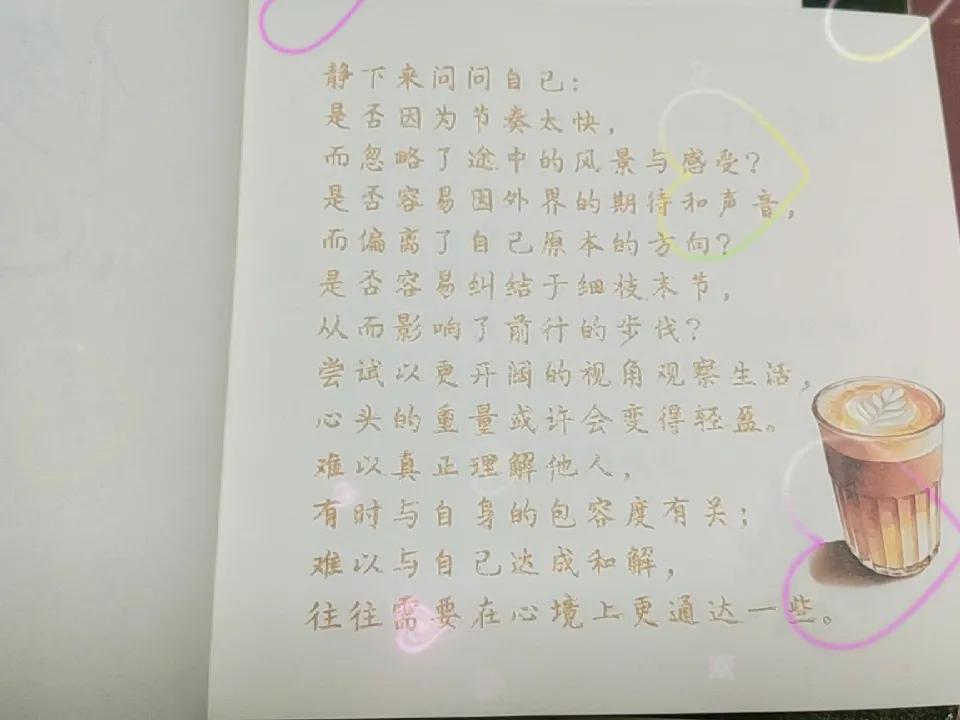 静下来问问自己：
是否因为节奏太快，
而忽略了途中的风景与感受？
是否容易因外界的期待和声音，
而偏离了自己原本的方向？
是否容易纠结于细枝末节，
从而影响了前行的步伐？
尝试以更开阔的视角观察生活，
心头的重量或许会变得轻盈。
难以真正理解他人，
有时与自身的包容度有关；
难以与自己达成和解，
往往需要在心境上更通达一些。